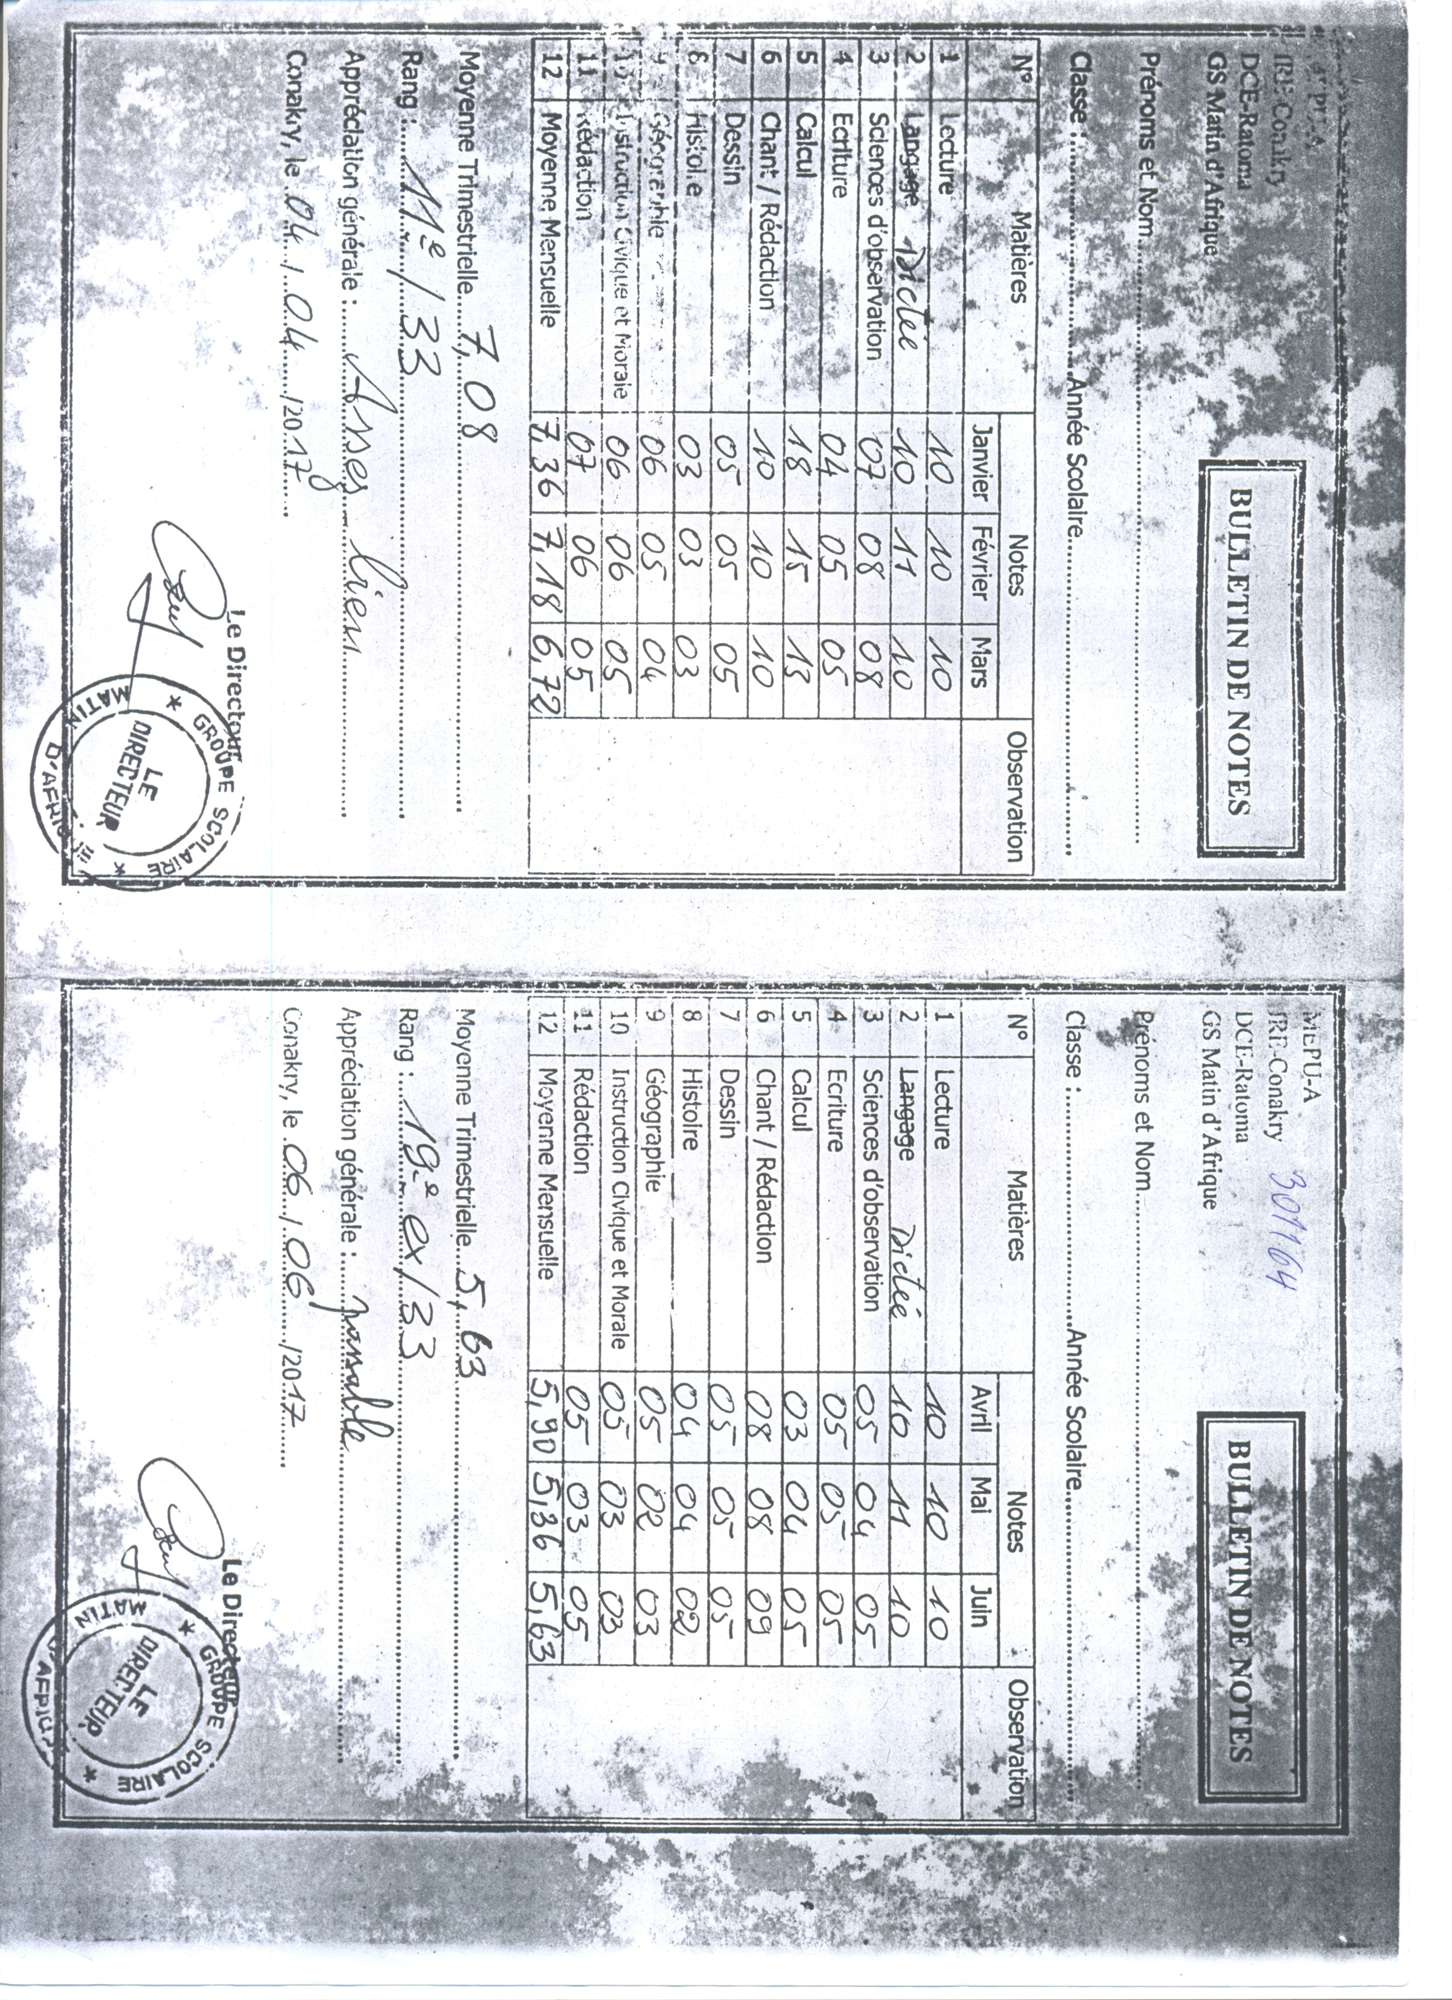 MEPU-A
IRE-Conakry
DCE-Ratoma
GS Matin d'Afrique
BULLETIN DE NOTES
Prénoms et Nom
Classe : Année Scolaire
N° Matières Notes Observation
Janvier Février Mars
1 Lecture 10 10 10
2 Langage Dictée 10 11 10
3 Sciences d'observation 07 08 08
4 Ecriture 04 05 05
5 Calcul 18 15 13
6 Chant / Rédaction 10 10 10
7 Dessin 05 05 05
8 Histoire 03 03 03
9 Géographie 06 05 04
10 Instruction Civique et Morale 06 06 05
11 Rédaction 07 06 05
12 Moyenne Mensuelle 7,36 7,18 6,72
Moyenne Trimestrielle 7,08
Rang : 11e/33
Appréciation générale : Assez bien
Conakry, le 04/04/2017
Le Directeur
GROUPE SCOLAIRE MATIN D'AFRIQUE
LE DIRECTEUR
MEPU-A
IRE-Conakry 301164
DCE-Ratoma
GS Matin d'Afrique
BULLETIN DE NOTES
Prénoms et Nom
Classe : Année Scolaire
N° Matières Notes Observation
Avril Mai Juin
1 Lecture 10 10 10
2 Langage Dictée 10 11 10
3 Sciences d'observation 05 04 05
4 Ecriture 05 05 05
5 Calcul 03 04 05
6 Chant / Rédaction 08 08 09
7 Dessin 05 05 05
8 Histoire 04 04 02
9 Géographie 05 02 03
10 Instruction Civique et Morale 05 03 03
11 Rédaction 05 03 05
12 Moyenne Mensuelle 5,90 5,36 5,63
Moyenne Trimestrielle 5,63
Rang : 19e ex/33
Appréciation générale : passable
Conakry, le 06/06/2017
Le Directeur
GROUPE SCOLAIRE MATIN D'AFRIQUE
LE DIRECTEUR